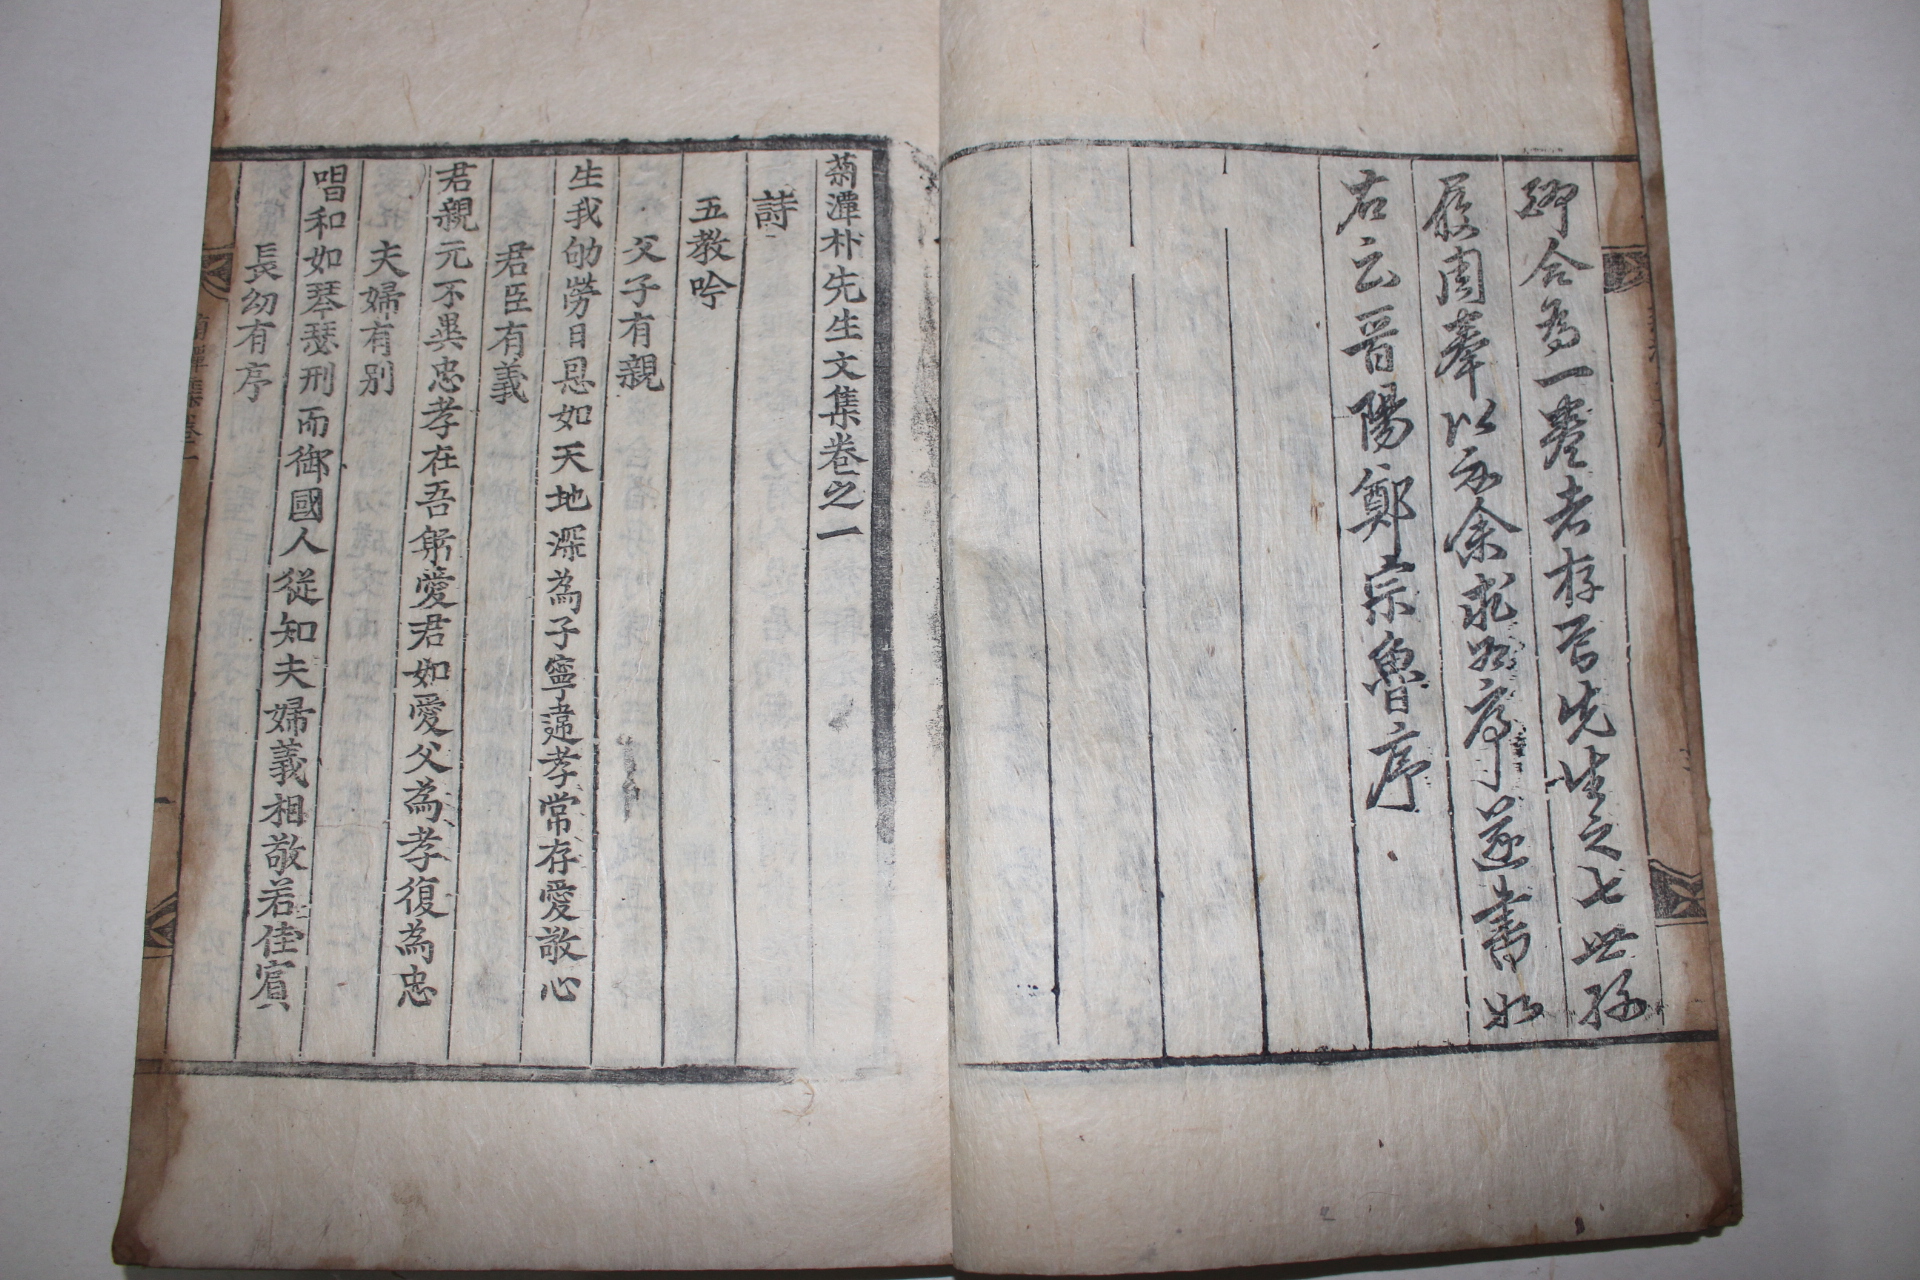 卿合為一卷者存焉先生之七世孫
周奉以示余求為序遂書如
右云晋陽鄭宗魯序
菊潭朴先生文集卷之一
詩
五教吟
父子有親
生我劬勞日恩如天地深為子寧違孝常存愛敬心
君臣有義
君親元不異忠孝在吾躬愛君如愛父為孝復為忠
夫婦有別
唱和如琴瑟刑而御國人從知夫婦義相敬若佳賓
長幼有序
菊潭集卷一